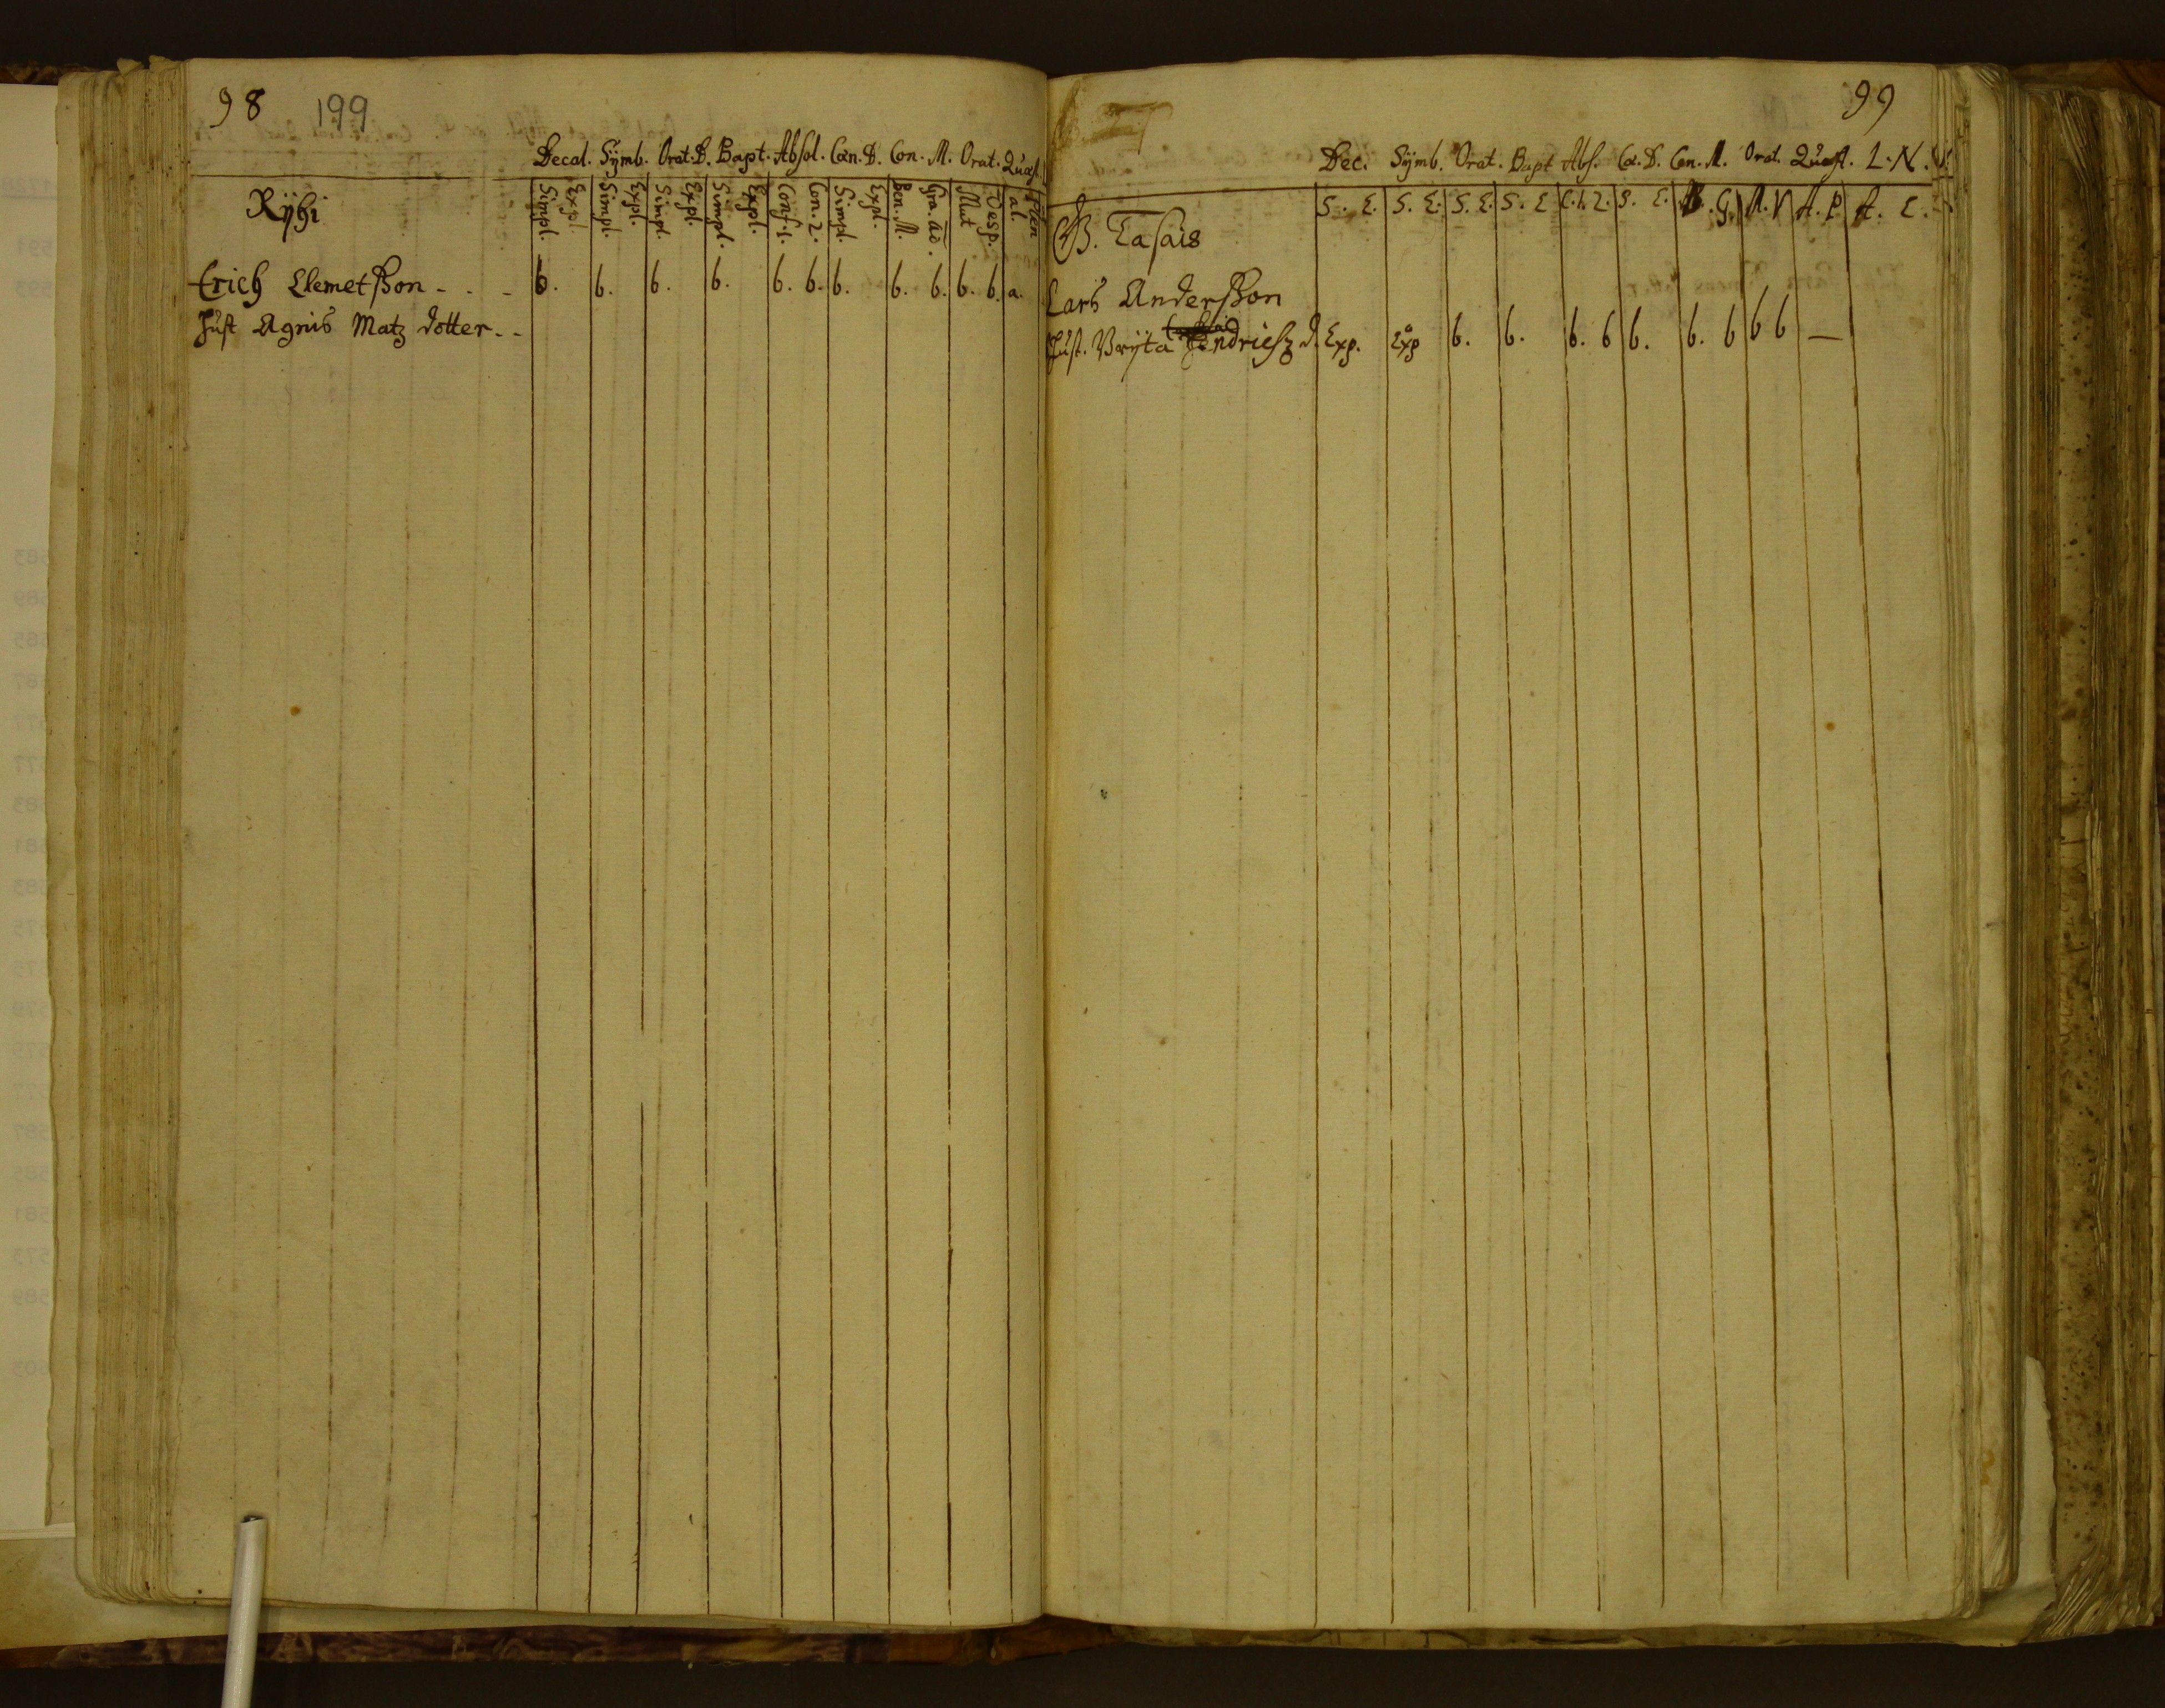 98 199
Decal. Sÿmb. Orat. D. Bapt. Absol. Cæn. D. Con. M. Orat. Quæst.
Rÿhi
Simpl. Expl. Simpl. Expl. Simpl. Expl. Simpl. Expl. Conf. 1. Con. 2. Simpl. Expl. Ben. M. Gra. ac. Mut Vesp. al.
Erich Clemetsson - . - b. b. b. b. b. b. b. b. b. b. b. a.
Hust Agnis Matz dotter - -
99
Dec. Sÿmb. Orat. Bapt Abs. Cæ. D. Con. M. Orat. Quæst. L. N.
S. E. S. E. S. E. S. E C. 1. 2. S. E. B. G. M. V A. P A. E.
B. Tasais
Lars Andersson
Hust. Vrÿta Hindriesz d. Exp. Exp b. b. b. b b. b. b b b —